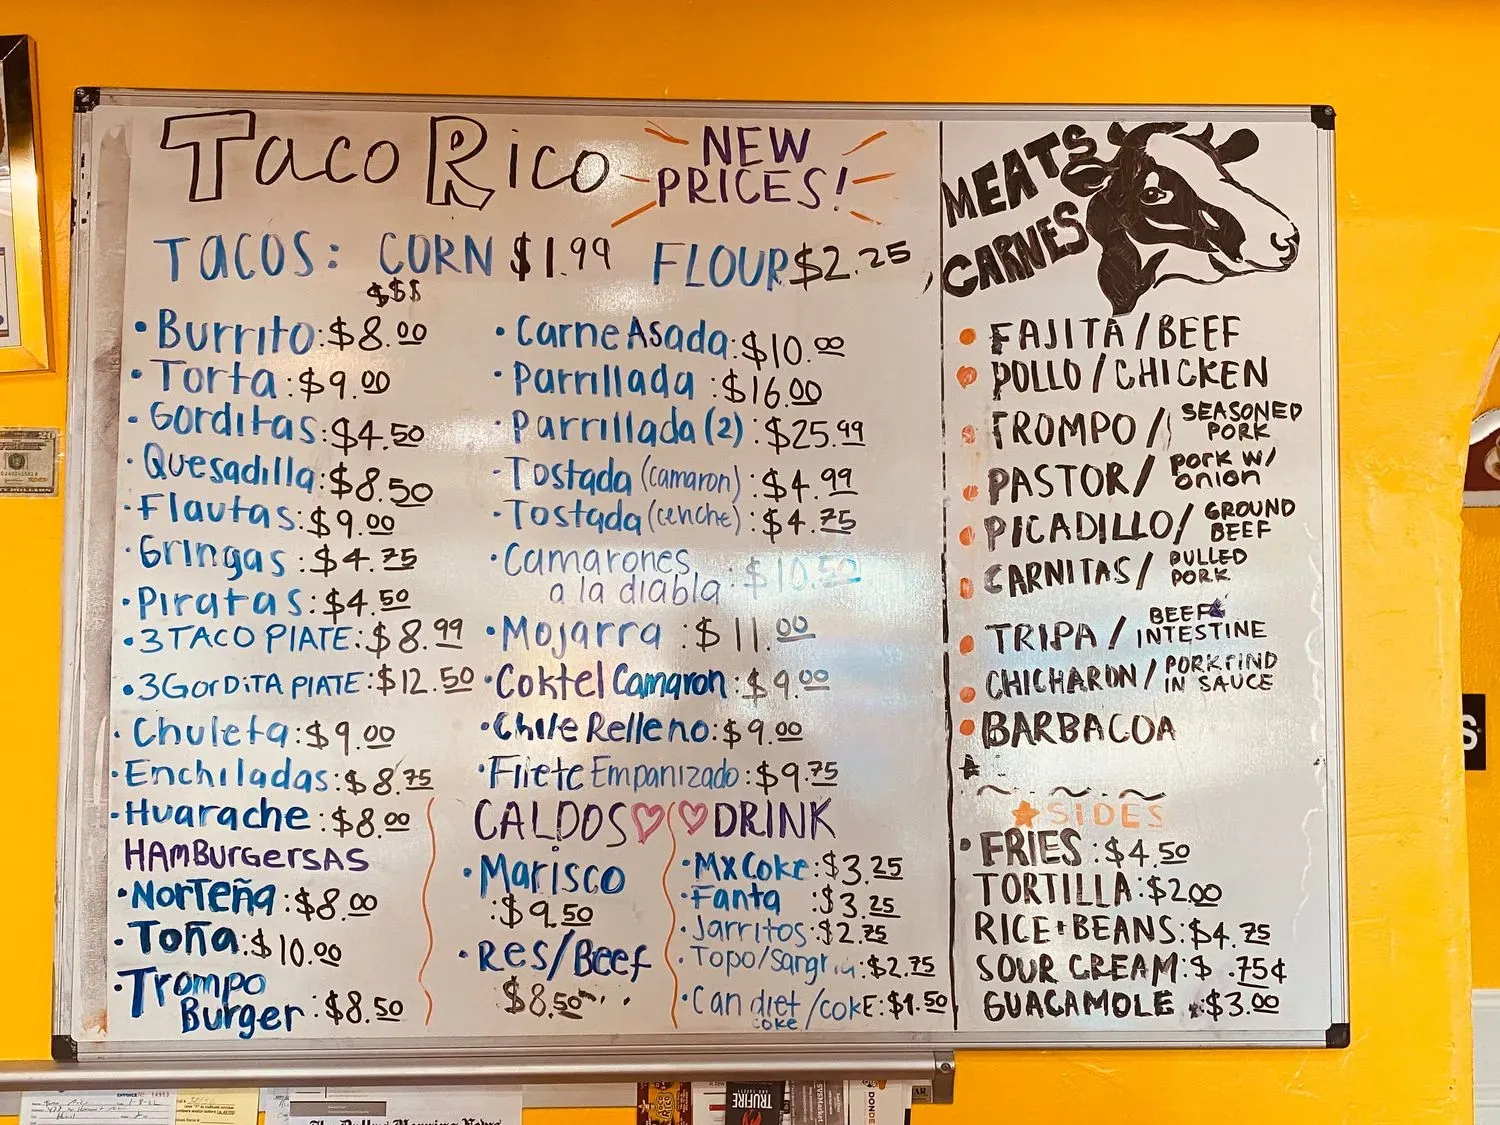 Taco Rico
NEW
PRICES!
TACOS: CORN $1.99 FLOUR $2.25
$$$
• Burrito: $8.00
• Torta: $9.00
• Gorditas: $4.50
• Quesadilla: $8.50
• Flautas: $9.00
• Gringas: $4.75
• Piratas: $4.50
• 3 TACO PlATE: $8.99
• 3 GorDiTA PlATE: $12.50
• Chuleta: $9.00
• Enchiladas: $8.75
• Huarache: $8.00
HAmBurgersAS
• NorTeña: $8.00
• Toña: $10.00
• Trompo
Burger: $8.50
• Carne Asada: $10.00
• Parrillada: $16.00
• Parrillada (2): $25.99
• Tostada (camaron): $4.99
• Tostada (cenche): $4.75
• Camarones
a la diabla: $10.50
• Mojarra: $11.00
• Coktel Camaron: $9.00
• Chile Relleno: $9.00
• Filete Empanizado: $9.75
CALDOS
• Marisco
: $9.50
• Res/Beef
$8.50
DRINK
• Mx Coke: $3.25
• Fanta: $3.25
• Jarritos: $2.75
• Topo/Sangria: $2.75
• Can diet/cokE: $1.50
coke
MEATS
CARNES
• FAJITA/BEEF
• POLLO/CHICKEN
• TROMPO/ SEASONED
PORK
• PASTOR/ Pork w/
onion
• PICADILLO/ GROUND
BEEF
• CARNITAS/ PULLED
PORK
• TRIPA/ BEEF
INTESTINE
• CHICHARON/ PORK RIND
IN SAUCE
• BARBACOA
SIDES
• FRIES: $4.50
TORTILLA: $2.00
RICE+BEANS: $4.75
SOUR CREAM: $ .75¢
GUACAMOLE: $3.00
TRUFIRE